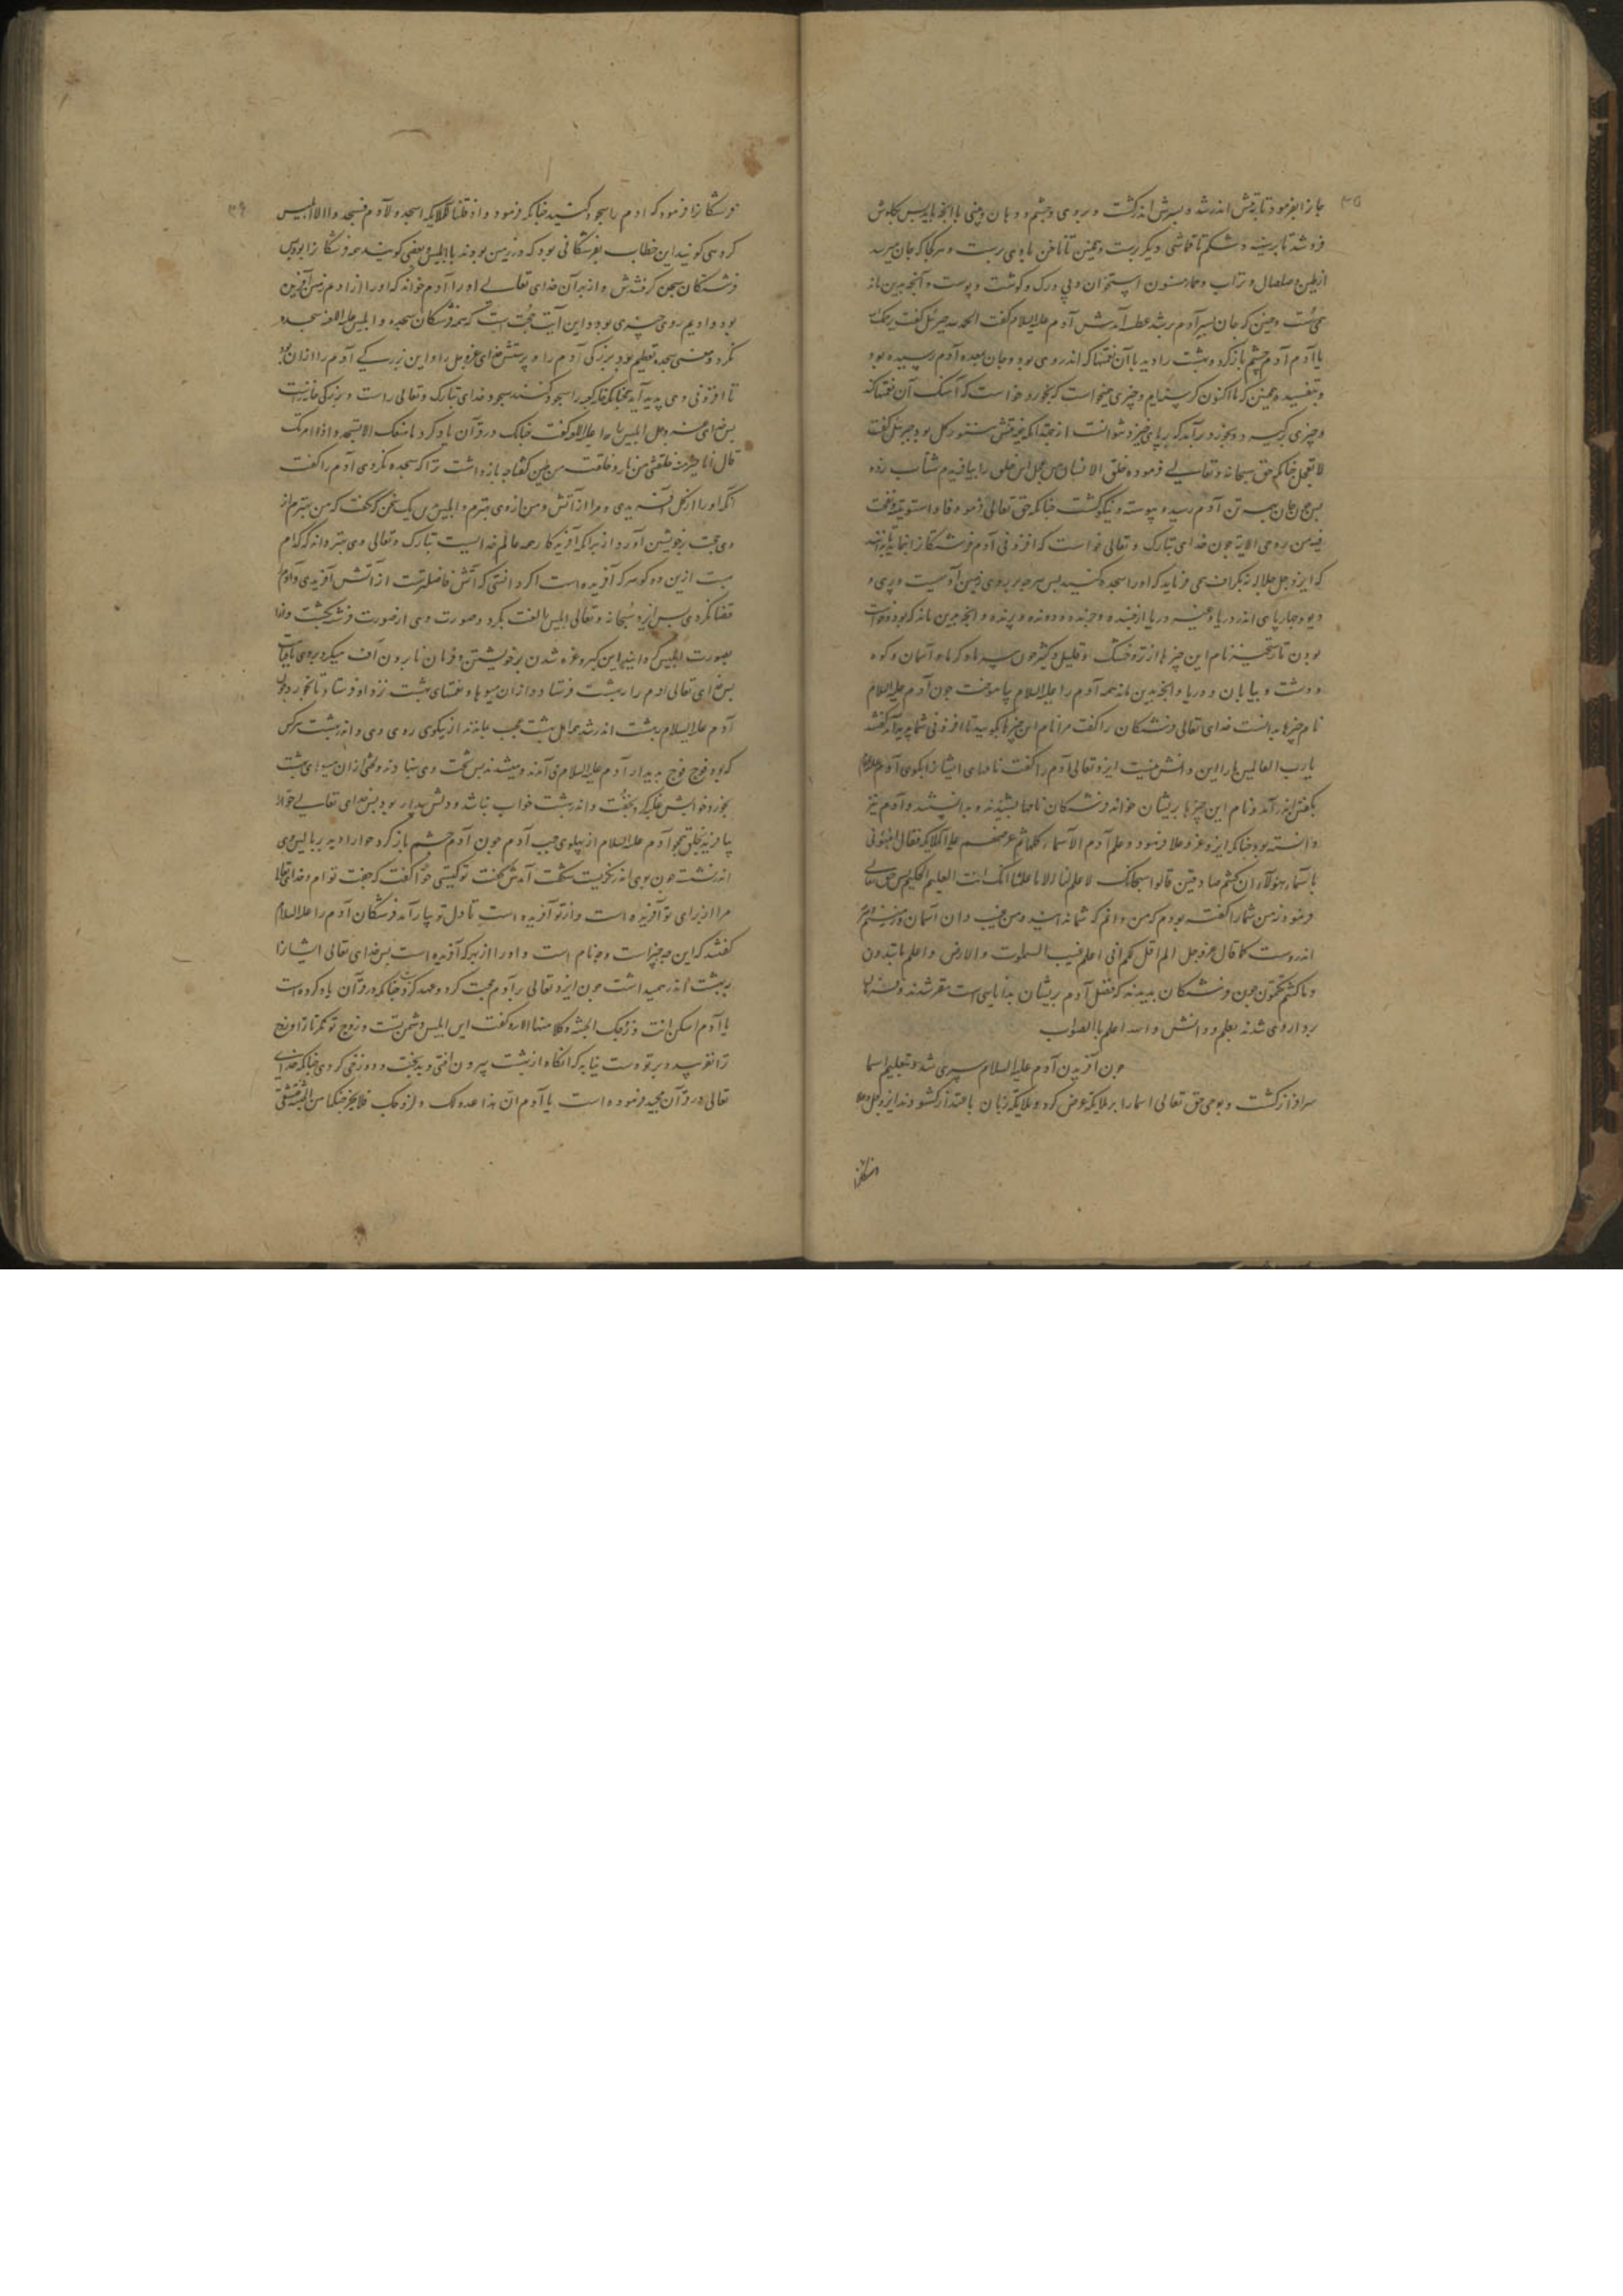 ۳۵
جانرا بفرمود تا بتنش اندر شد و بسرش اندر گشت و بروی و چشم و دهان و بینی با انجه بایدبس بکلوش
فرو شد تا بر سینه و شکم تا قماشی دیکر رست و همچنین تا ناخن باوی برست و هر کجا که جان میرسید
از طین و صلصال و تراب و حمأ مسنون استخوان و پی و رک و کوشت و پوست و آنچه بدین ماند
همی گشت و همچنین که جان بسر آدم بر شد عطسه آمدش آدم علیه السلام گفت الحمد لله جبرئیل گفت یرحمک الله
یا آدم آدم چشم باز کرد و بهشت را دید با آن نعمتها که اندر وی بود و جان بمعده آدم رسیده بود
و چیزی میخواست که بخورد خواست که آهنک آن نعمتها کند
و چیزی بگیرد و بخورد بر آمد که بر پای خیزد نتوانست از جهت آنکه نیمه تنش هنوز کل بود جبرئیل گفت
لا تعجل چنانکه حق سبحانه و تعالی فرمود خلق الانسان من عجل این خلق را بیافریدیم شتاب زده
پس چون جان بهمه تن آدم رسید و پیوسته و نیکو گشت چنانکه حق تعالی فرمود فاذا سویته و نفخت
فیه من روحی الایه چون خدای تبارک و تعالی خواست که افزونی آدم فرشتکانرا بنماید تا بدانند
که ایزد جل جلاله نه بگزاف همی فرماید که او را سجده کنید بس هر چه بر روی زمین آدمیست و پری و
دیو و چهارپای اندر دریا و غیر دریا از جنبنده و چرنده و دونده و پرنده و انچه بدین ماند که بود و خواست
بودن تا رستخیز نام این چیزها از تر و خشک و قلیل و کثیر چون سپید و سیاه و آسمان و کوه
و دشت و بیابان و دریا و انچه بدین ماند همه آدم را علیه السلام بیاموخت چون آدم علیه السلام
نام چیزها بدانست خدای تعالی فرشتکان را گفت مرا نام این چیزها بکویید تا افزونی شما پدید آید گفتند
یا رب العالمین ما را این دانش نیست ایزد تعالی آدم را گفت نامهای ایشانرا بکوی آدم علیه السلام
بگفتن اندر آمد و نام این چیزها بریشان خواند فرشتکان نامها بشنیدند و بدانستند و آدم نیز
دانسته بود چنانکه ایزد عز و علا فرمود و علم آدم الاسماء کلها ثم عرضهم علی الملایکه فقال انبئونی
باسماء هؤلاء ان کنتم صادقین قالوا سبحانک لا علم لنا الا ما علمتنا انک انت العلیم الحکیم پس حق تعالی
فرمود نه من شما را گفته بودم که من دانم که شما ندانید و من غیب دان آسمان و زمینم و هرچه
اندروست کما قال عز و جل الم اقل لکم انی اعلم غیب السموات و الارض و اعلم ما تبدون
و ما کنتم تکتمون چون فرشتکان بدیدند که فضل آدم بریشان بدانایی است مقر شدند و فرمان
بردار وی شدند بعلم و دانش و الله اعلم بالصواب
چون آفریدن آدم علیه السلام سپری شد و بتعلیم اسما
سرافراز گشت و بوحی حق تعالی اسما را بر ملایکه عرض کرد و ملایکه زبان باعتذار گشودند ایزد جل و علا
فرشتکانرا
۳۶
فرشتکانرا فرمود که آدم را سجود کنید چنانکه فرمود و اذ قلنا للملایکه اسجدوا لآدم فسجدوا الا ابلیس
کروهی کویند این خطاب بفرشتکانی بود که در زمین بودند با ابلیس و بعضی کویند همه فرشتکانرا بود پس
فرشتکان سجود کردندش و از بهر آن خدای تعالی او را آدم خواند که او را از ادیم زمین آفریده
بود و ادیم روی چیزی بود و این آیت حجت است که همه فرشتکان سجده و ابلیس علیه اللعنه سجده
نکرد و معنی سجده تعظیم بود و بزرکی آدم را و پرستش خدای عز و جل را و این بزرکی آدم را از ان بود
تا افزونی وی پدید آید همچنانکه خانه کعبه را سجود کنند سجود خدای تبارک و تعالی راست و بزرکی خانه راست
پس خدای عز و جل ابلیس را علیه اللعنه گفت چنانک در قرآن یاد کرد ما منعک الا تسجد اذ امرتک
قال انا خیر منه خلقتنی من نار و خلقته من طین گفتا چه باز داشت ترا که سجده نکردی آدم را گفت
آنکه او را از کل آفریدی و مرا از آتش و من از وی بهترم و ابلیس این یک سخن که گفت که من بهترم از
وی حجت بر خویشتن آورد از بهر آنکه آفریدکار همه عالم خداست تبارک و تعالی وی بهتر داند که کدام
بهست ازین دو کوهر که آفریده است اکر دانستی که آتش فاضلترست از آتش آفریدی و آدم
قضا نکردی بس ایزد سبحانه و تعالی ابلیس را لعنت بکرد و صورت وی از صورت فرشته بگشت و او را
بصورت ابلیس گردانید این کبر و غره شدن بر خویشتن و فرمان نابردن آفت میکرد بروی تا قیامت
بس خدای تعالی آدم را ببهشت فرستاد و از ان میوها و نعمتهای بهشت نزد او فرستاد تا بخورد و چون
آدم علیه السلام ببهشت اندر شد همه اهل بهشت عجب بماندند از نیکوی روی وی و اندر بهشت هر کس
که بود فوج فوج بدیدار آدم علیه السلام می آمدند و میشدند بس بتخت وی بنهادند و لختی از ان میوهای بهشت
بخورد و خوابش غلبه کرد و بخفت و اندر بهشت خواب نباشد و دلش بیدار بود بس خدای تعالی حوا را
بیافرید بخلق همچو آدم علیه السلام از پهلوی چپ آدم چون آدم چشم باز کرد حوا را دید بر بالین وی
اندر نشسته چون بوی اندر نکریست شکفت آمدش گفت تو کیستی حوا گفت که جفت توام و خدای تعالی
مرا از برای تو آفریده است و از تو آفریده است تا دل تو بیارامد فرشتکان آدم را علیه السلام
گفتند که این چه چیز است و چه نام است و او را از بهر که آفریده است بس خدای تعالی ایشانرا
ببهشت اندر همیداشت چون ایزد تعالی بر آدم حجت کرد و عهد کرد چنانکه در قرآن یاد کرده است
یا آدم اسکن انت و زوجک الجنة و کلا منها الایه و گفت این ابلیس دشمن تست و زوج تو نکر تا ترا و زوج
ترا نفریبد و بر تو دست نیابد که آنکاه از بهشت بیرون افتی و بدبخت و دوزخی گردی چنانکه خدای
تعالی در قرآن مجید فرموده است یا آدم ان هذا عدو لک و لزوجک فلا یخرجنکما من الجنة فتشقی